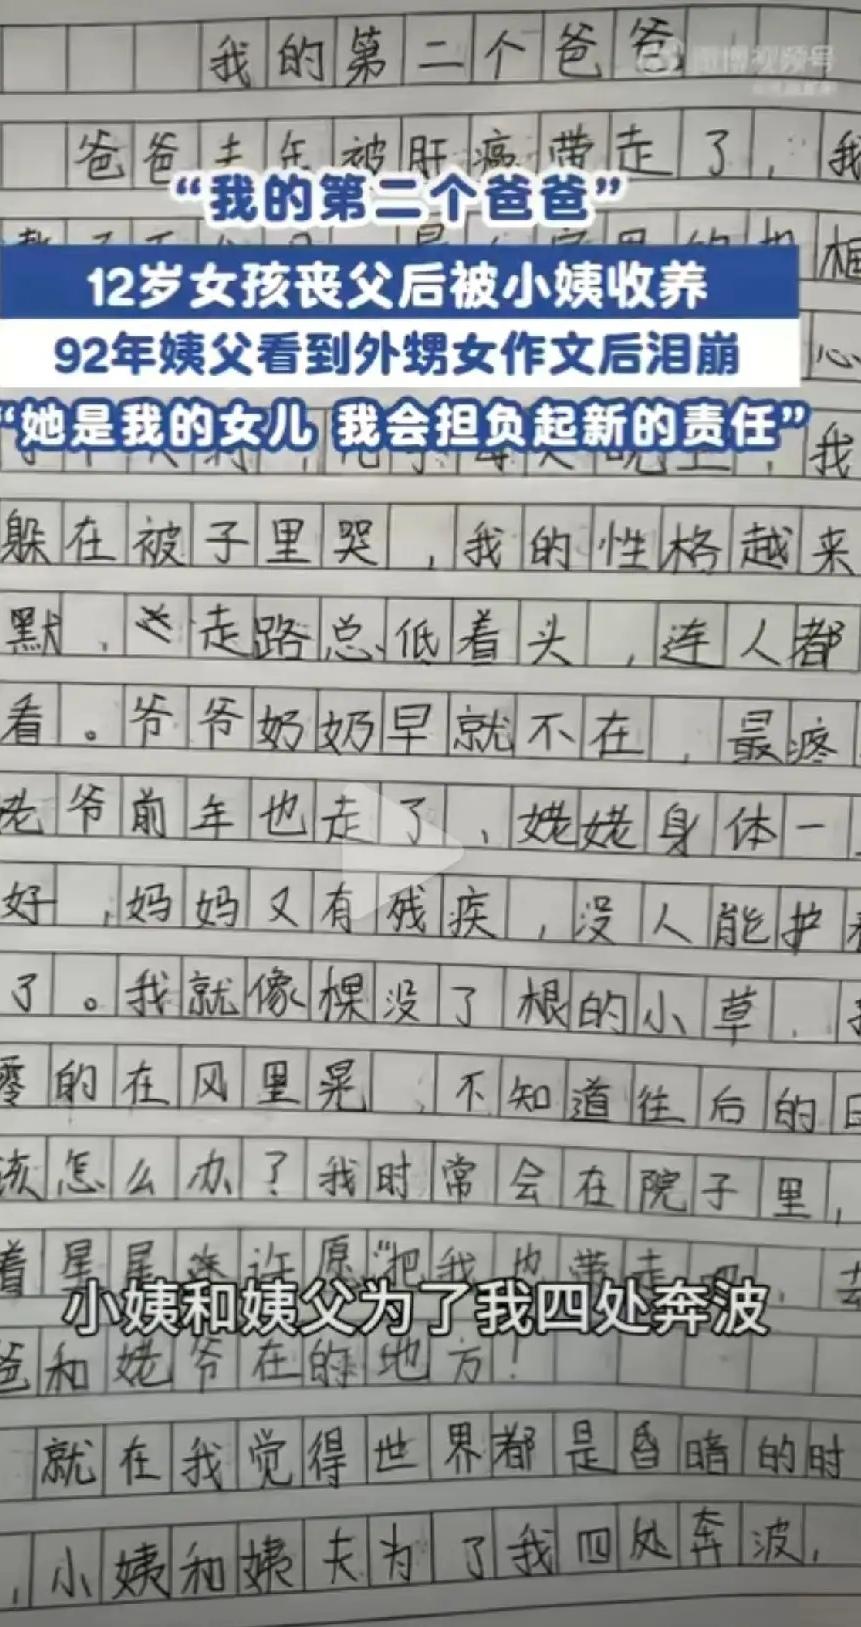 我的第二个爸爸
微博视频号
爸爸去年被肝癌带走了，我
“我的第二个爸爸”
12岁女孩丧父后被小姨收养
92年姨父看到外甥女作文后泪崩
“她是我的女儿 我会担负起新的责任”
躲在被子里哭，我的性格越来
默，走路总低着头，连人都
看。爷爷奶奶早就不在，最疼
姥爷前年也走了，姥姥身体一
好，妈妈又有残疾，没人能护
了。我就像棵没了根的小草，
零的在风里晃，不知道往后的日
该怎么办？我时常会在院子里，
着星星许愿“把我也带走吧，去
小姨和姨父为了我四处奔波
爸和姥爷在的地方！
就在我觉得世界都是昏暗的时
，小姨和姨夫为了我四处奔波，